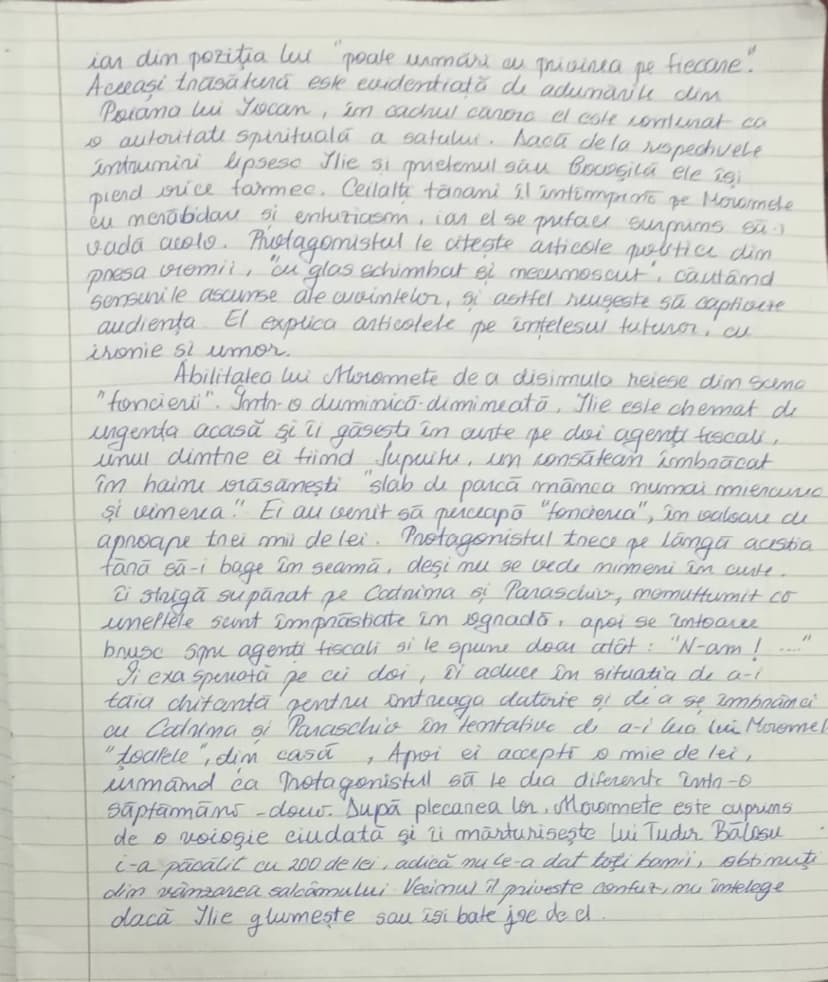 iar din poziția lui "poate urmări cu privirea pe fiecare".
Aceeași trăsătură este evidențiată de adunările din
Poiana lui Iocan, în cadrul cărora el este conturat ca
o autoritate spirituală a satului. Dacă de la respectivele
întruniri lipsesc Ilie și prietenul său Cocoșilă ele își
pierd orice farmec. Ceilalți țărani îl întâmpină pe Moromete
cu nerăbdare și entuziasm, iar el se preface surprins să-i
vadă acolo. Protagonistul le citește articole politice din
presa vremii, "cu glas schimbat și necunoscut", căutând
sensurile ascunse ale cuvintelor, și astfel reușește să captiveze
audiența. El explică articolele pe înțelesul tuturor, cu
ironie și umor.
Abilitatea lui Moromete de a disimula reiese din scena
"foncierii". Într-o duminică-dimineață, Ilie este chemat de
urgență acasă și îi găsește în curte pe doi agenți fiscali,
unul dintre ei fiind Jupuitu, un consătean îmbrăcat
în haine orășănești "slab de parcă mânca numai miercurea
și vinerea." Ei au venit să perceapă "foncierea", în valoare de
aproape trei mii de lei. Protagonistul trece pe lângă aceștia
fără să-i bage în seamă, deși nu se vede nimeni în curte.
Îi strigă supărat pe Catrina și Paraschiv, nemulțumit că
uneltele sunt împrăștiate în ogradă, apoi se întoarce
brusc spre agenți fiscali și le spune doar atât: "N-am! ..."
Îi exasperată pe cei doi, îi aduce în situația de a-i
tăia chitanță pentru întreaga datorie și de a se îmbrânci
cu Catrina și Paraschiv în tentative de a-i lua lui Moromet
"toatele", din casă, Apoi ei acceptă o mie de lei,
urmând ca Protagonistul să le dea diferența într-o
săptămână - două. După plecarea lor, Moromete este cuprins
de o voioșie ciudată și îi mărturisește lui Tudor Bălosu
i-a păcălit cu 200 de lei, adică nu le-a dat toți banii, obținuți
din vânzarea salcâmului Vecinul îl privește confuz, nu înțelege
dacă Ilie glumește sau își bate joc de el.